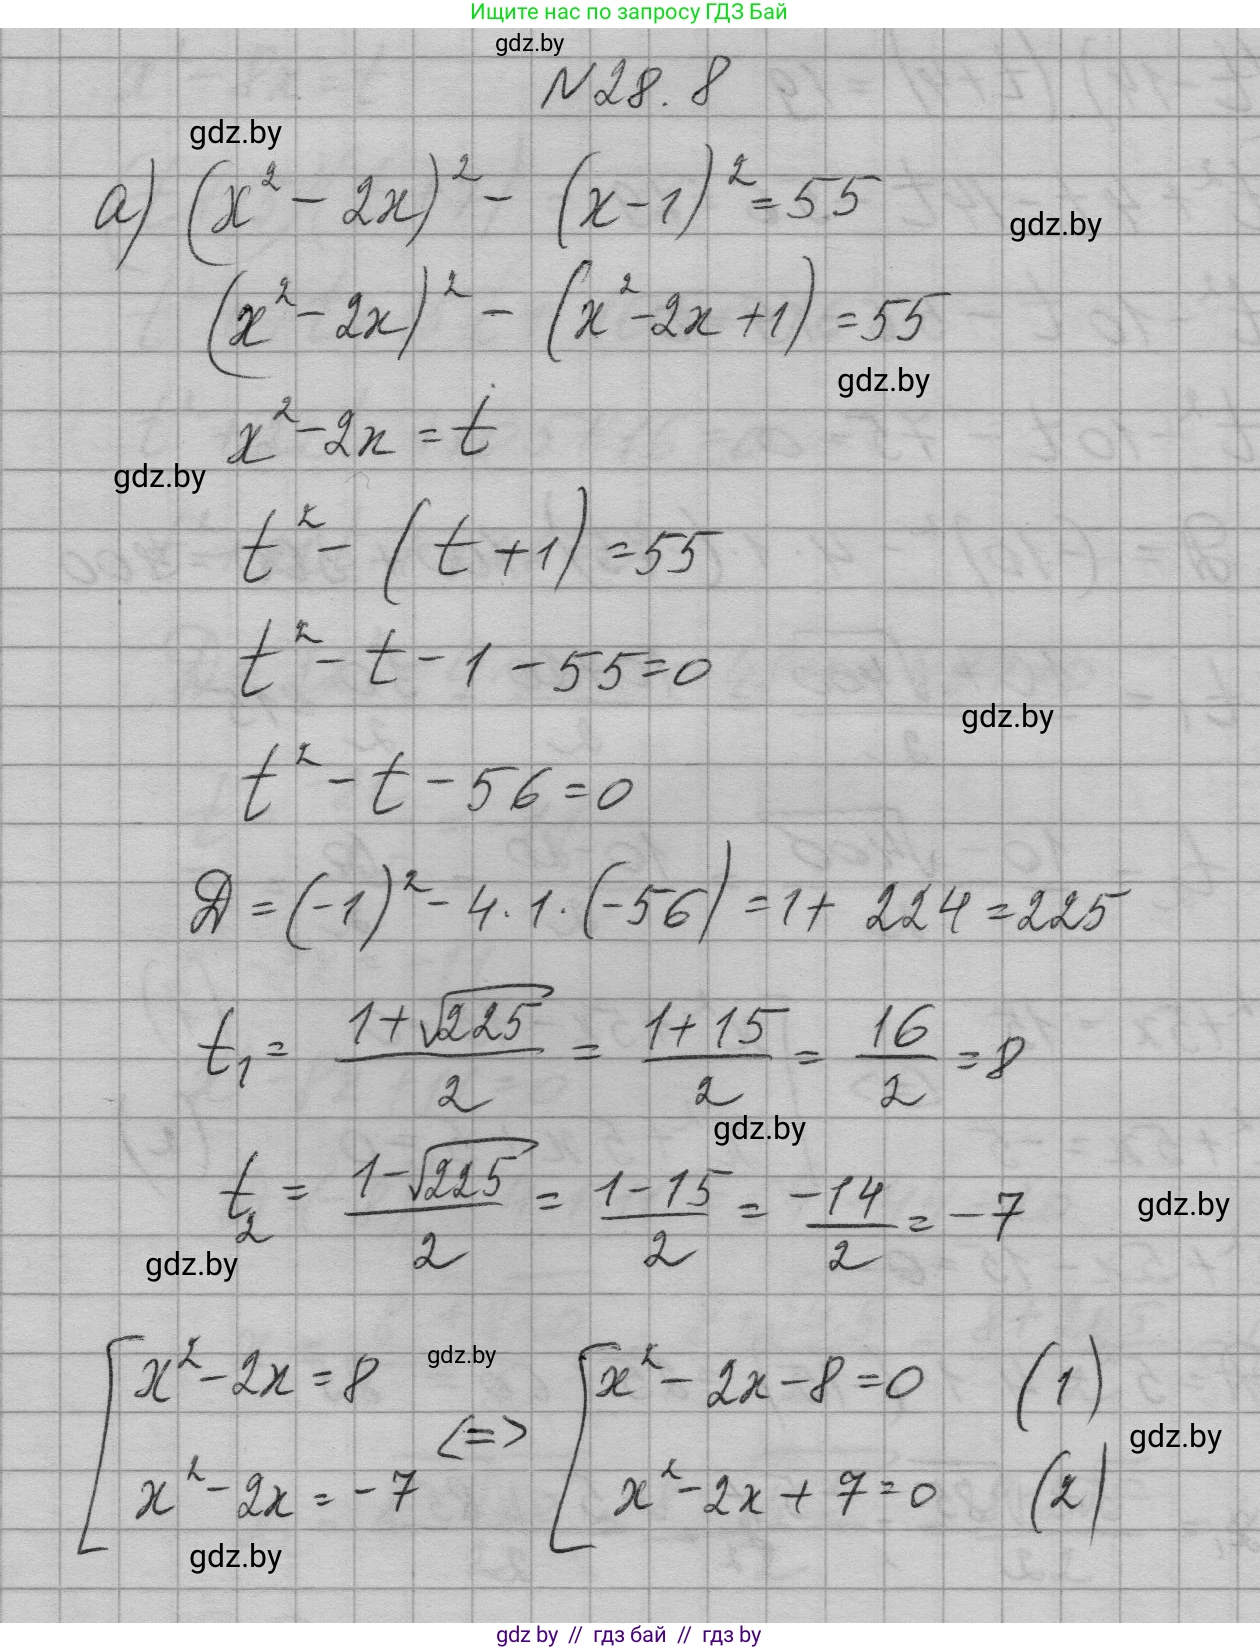 Ищите нас по запросу ГДЗ Бай
gdz.by
N28.8
gdz.by
а) (x² - 2x)² - (x-1)² = 55
gdz.by
(x² - 2x)² - (x² - 2x + 1) = 55
gdz.by
x² - 2x = t
gdz.by
t² - (t + 1) = 55
t² - t - 1 - 55 = 0
gdz.by
t² - t - 56 = 0
D = (-1)² - 4 · 1 · (-56) = 1 + 224 = 225
t₁ = (1 + √225)/2 = (1 + 15)/2 = 16/2 = 8
gdz.by
t₂ = (1 - √225)/2 = (1 - 15)/2 = -14/2 = -7
gdz.by
gdz.by
[ x² - 2x = 8 gdz.by [ x² - 2x - 8 = 0 (1)
<=>
gdz.by
x² - 2x = -7 x² - 2x + 7 = 0 (2)
gdz.by
gdz by // гдз бай // гдз by